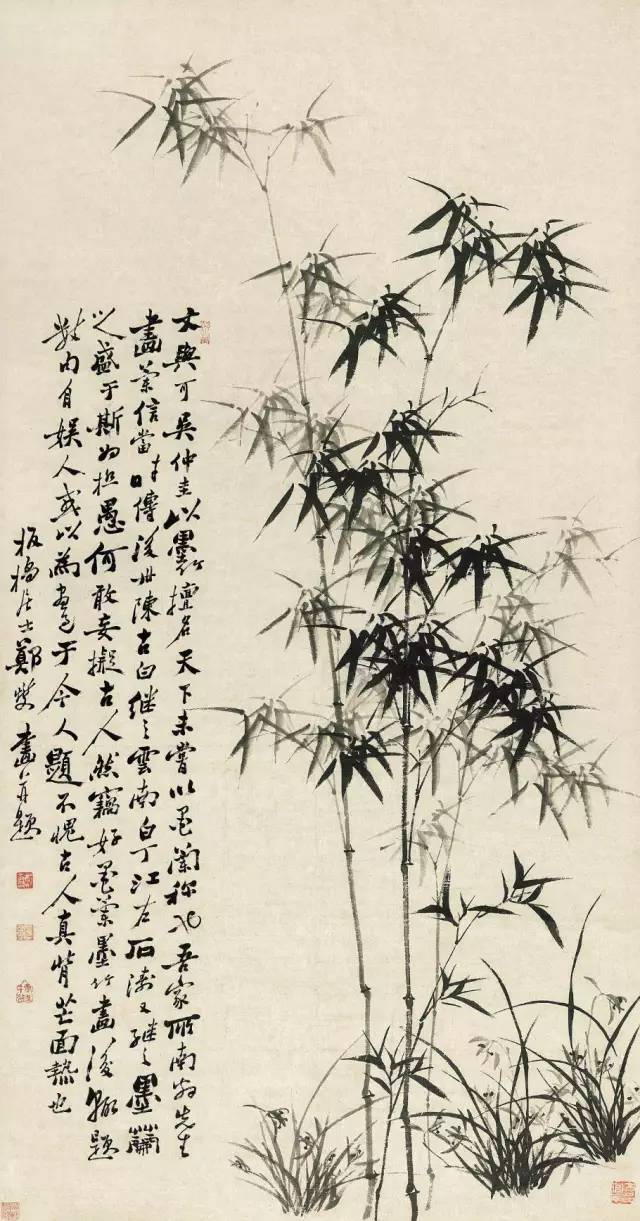 文與可吳仲圭以墨竹擅名天下未嘗以墨蘭稱也吾家所南翁先生
畫蘭信當時傳後世陳古白繼之雲南白丁江右石濤又繼之墨蘭
之盛于斯為極愚何敢妄擬古人然竊好墨蘭墨竹畫後輒題
數句自娛人或以為畫于今人題不愧古人真背芒面熱也
板橋居士鄭燮畫并題